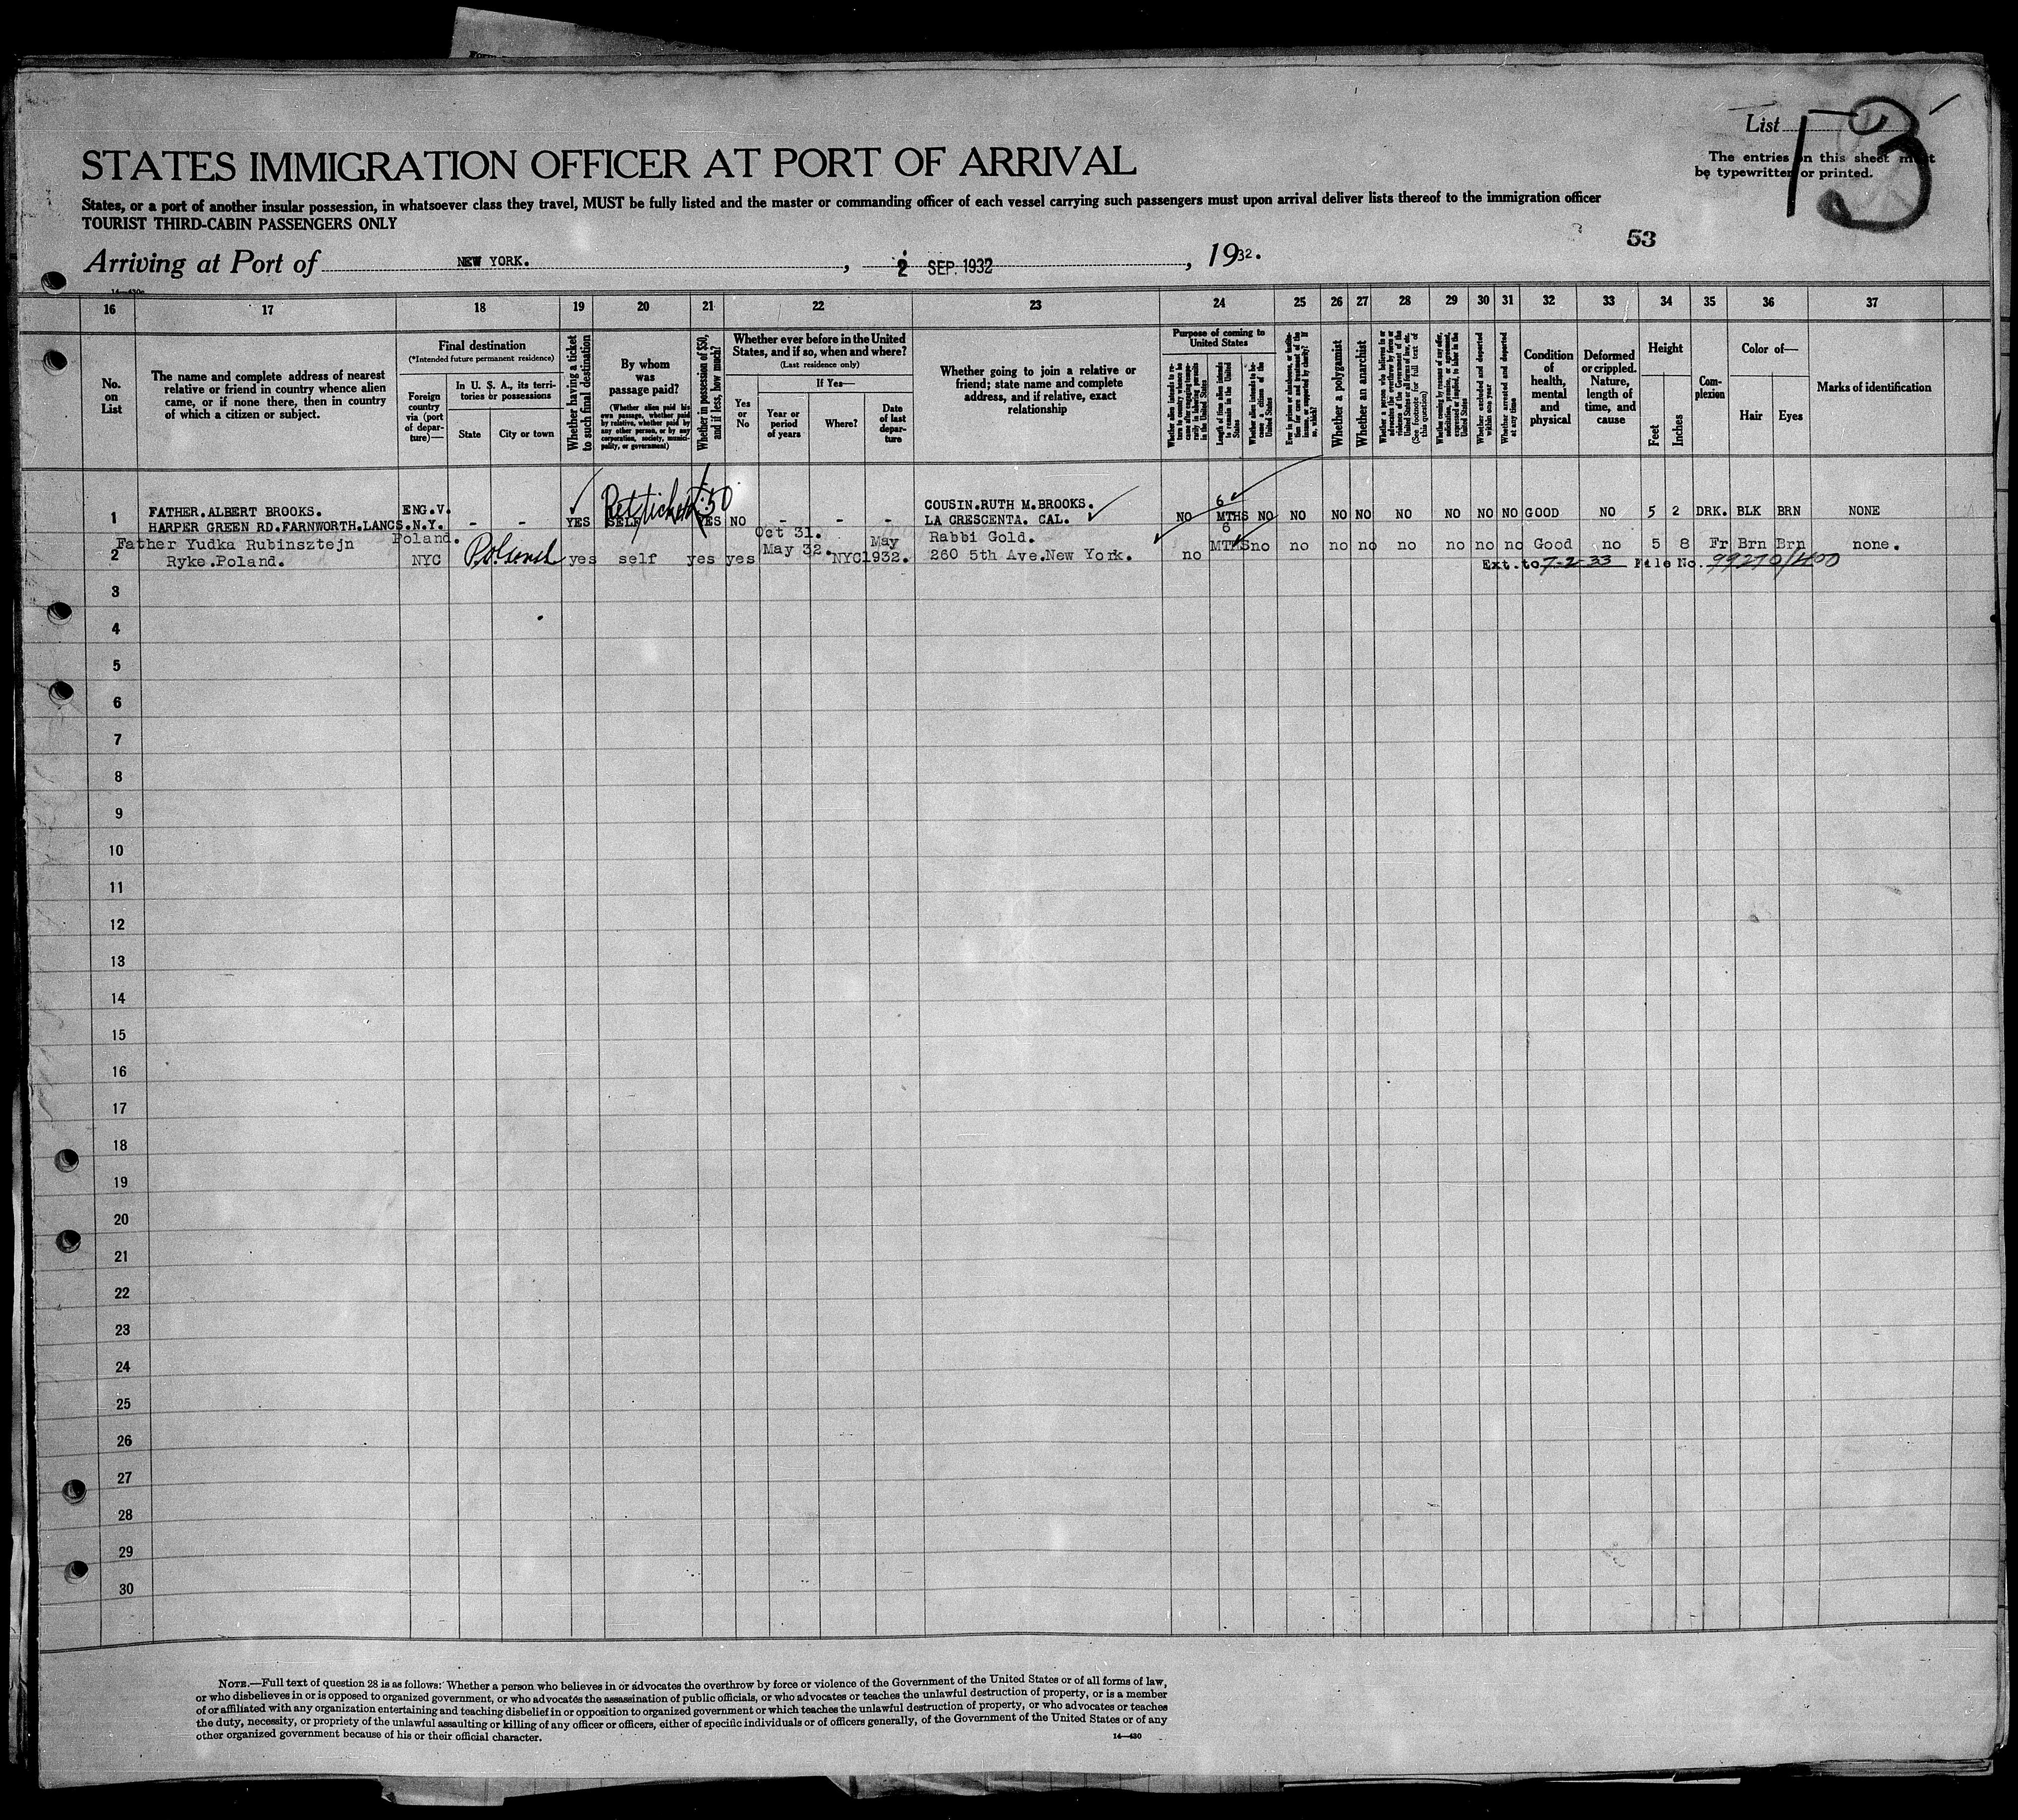 List 13
The entries on this sheet must
be typewritten or printed.
STATES IMMIGRATION OFFICER AT PORT OF ARRIVAL
States, or a port of another insular possession, in whatsoever class they travel, MUST be fully listed and the master or commanding officer of each vessel carrying such passengers must upon arrival deliver lists thereof to the immigration officer
TOURIST THIRD-CABIN PASSENGERS ONLY
53
Arriving at Port of NEW YORK. , 2 SEP. 1932 , 1932.
16 17 18 19 20 21 22 23 24 25 26 27 28 29 30 31 32 33 34 35 36 37
No.
on
List
The name and complete address of nearest
relative or friend in country whence alien
came, or if none there, then in country
of which a citizen or subject.
Final destination
(*Intended future permanent residence)
Foreign
country
via (port
of depar-
ture)—
In U. S. A., its terri-
tories or possessions
State City or town
Whether having a ticket
to such final destination
By whom
was
passage paid?
(Whether alien paid his
own passage, whether paid
by relative, whether paid by
any other person, or by any
corporation, society, munici-
pality, or government)
Whether in possession of $50,
and if less, how much?
Whether ever before in the United
States, and if so, when and where?
(Last residence only)
If Yes—
Yes
or
No
Year or
period
of years
Where?
Date
of last
depar-
ture
Whether going to join a relative or
friend; state name and complete
address, and if relative, exact
relationship
Purpose of coming to
United States
Length of time alien intends
to remain in the United
States
Whether alien intends to be-
come a citizen of the
United States
Whether a polygamist
Whether an anarchist
Whether excluded and deported
within one year
Whether arrested and deported
at any time
Condition
of
health,
mental
and
physical
Deformed
or crippled.
Nature,
length of
time, and
cause
Height
Feet Inches
Com-
plexion
Color of—
Hair Eyes
Marks of identification
1 FATHER.ALBERT BROOKS. ENG.V. Ret ticket 50 COUSIN.RUTH M.BROOKS. 6
HARPER GREEN RD.FARNWORTH.LANCS.N.Y. - - YES SELF YES NO - - - LA CRESCENTA. CAL. NO MTHS NO NO NO NO NO NO NO NO GOOD NO 5 2 DRK. BLK BRN NONE
2 Father Yudka Rubinsztejn Poland. Oct 31. May Rabbi Gold. 6
Ryke.Poland. NYC Poland yes self yes yes May 32. NYC 1932. 260 5th Ave.New York. no MTHS no no no no no no no no Good no 5 8 Fr Brn Brn none.
Ext. to 7-2-33 File No. 99270/400
3
4
5
6
7
8
9
10
11
12
13
14
15
16
17
18
19
20
21
22
23
24
25
26
27
28
29
30
NOTE.—Full text of question 28 is as follows: Whether a person who believes in or advocates the overthrow by force or violence of the Government of the United States or of all forms of law,
or who disbelieves in or is opposed to organized government, or who advocates the assassination of public officials, or who advocates or teaches the unlawful destruction of property, or is a member
of or affiliated with any organization entertaining and teaching disbelief in or opposition to organized government or which teaches the unlawful destruction of property, or who advocates or teaches
the duty, necessity, or propriety of the unlawful assaulting or killing of any officer or officers, either of specific individuals or of officers generally, of the Government of the United States or of any
other organized government because of his or their official character.
14—430